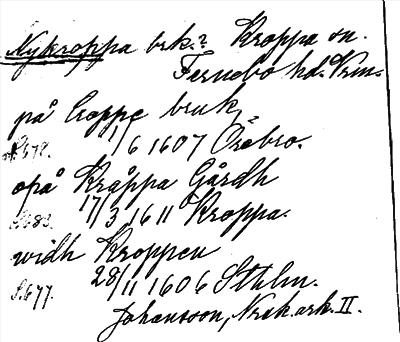 Nykroppa brk.? Kroppa sn.
Fernebo hd. Vrml.
på Croppe bruk
S.678. 1/6 1607 Örebro.
opå Kråppa Gårdh
S.683. 17/3 1611 Kroppa.
widh Kroppen
S.677. 28/11 1606 Sthlm.
Johansson, Norsk.ark. II.